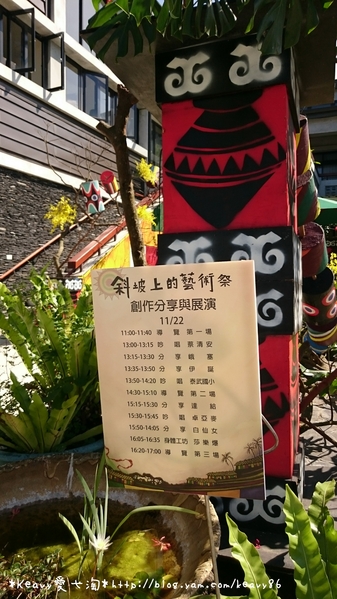 斜坡上的藝術祭
創作分享與展演
11/22
11:00-11:40 導覽 第一場
13:00-13:15 吟唱 蔡清安
13:15-13:30 分享 峨塞
13:35-13:50 分享 伊誕
13:50-14:20 吟唱 泰武國小
14:30-15:10 導覽 第二場
15:15-15:30 分享 達帖
15:30-15:45 吟唱 卓亞麥
15:50-14:05 分享 白仙女
16:05-16:35 身體工坊 莎樂爆
16:20-17:00 導覽 第三場
*Keavy愛七淘*http://blog.yam.com/keavy86